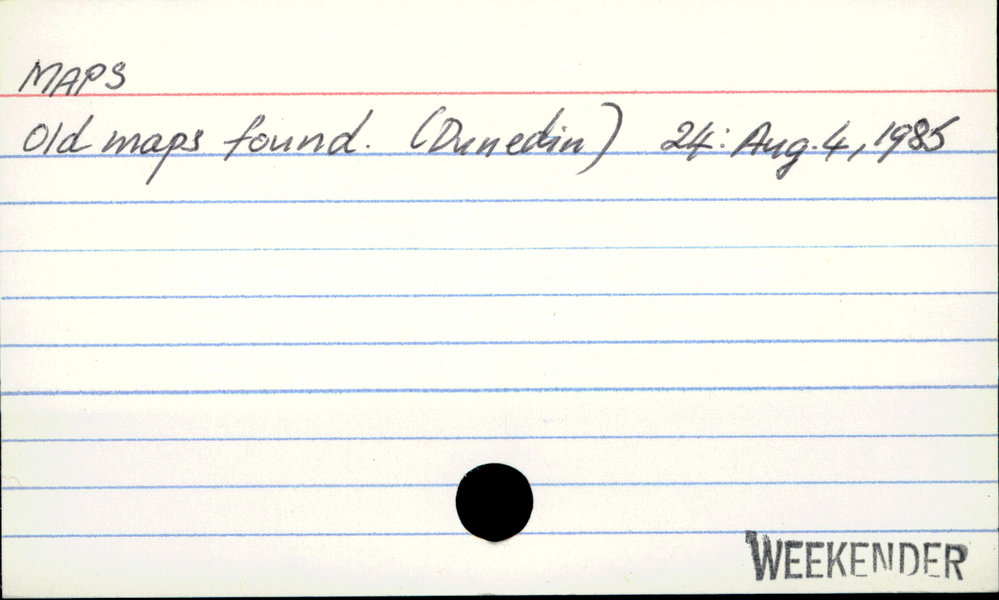 MAPS
Old maps found. (Dunedin) 24: Aug. 4, 1985
WEEKENDER